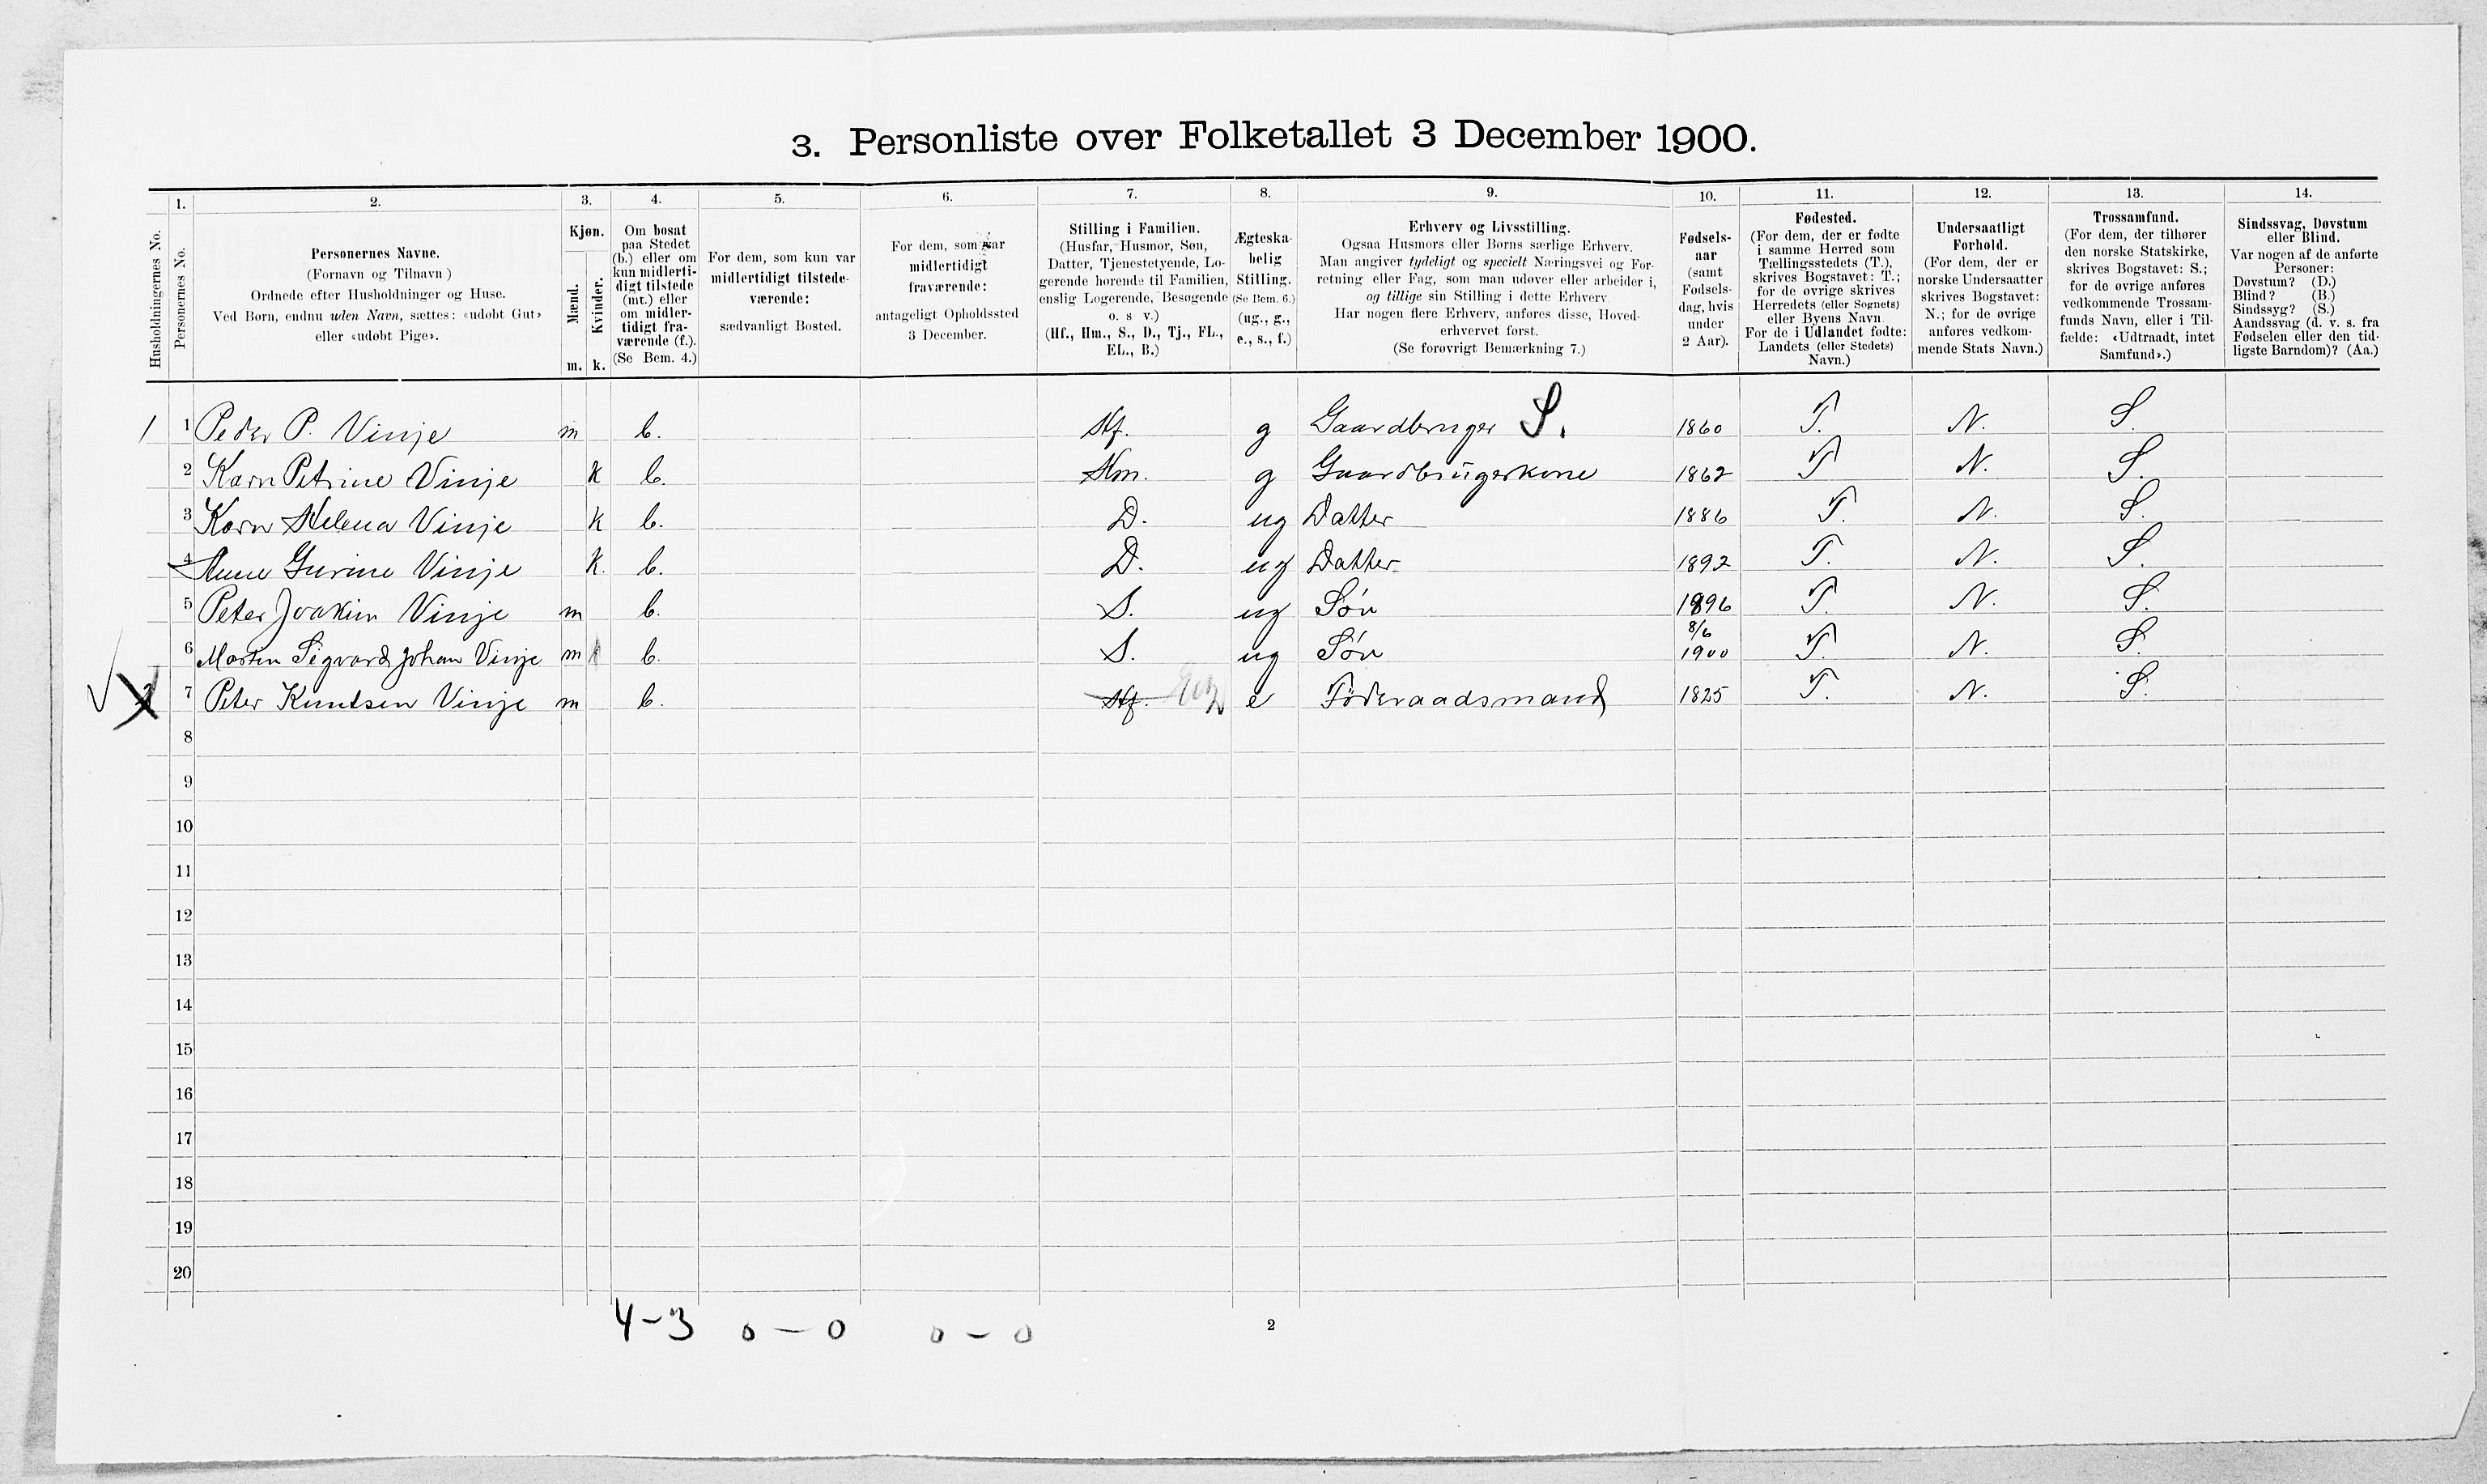 3. Personliste over Folketallet 3 December 1900.
Husholdningernes No.
1.
Personernes No.
2.
Personernes Navne.
(Fornavn og Tilnavn)
Ordnede efter Husholdninger og Huse.
Ved Børn, endnu uden Navn, sættes: «udøbt Gut»
eller «udøbt Pige».
3.
Kjøn.
Mænd.
Kvinder.
m. k.
4.
Om bosat
paa Stedet
(b.) eller om
kun midlerti-
digt tilstede
(mt.) eller
om midler-
tidigt fra-
værende (f.).
(Se Bem. 4.)
5.
For dem, som kun var
midlertidigt tilstede-
værende:
sædvanligt Bosted.
6.
For dem, som var
midlertidigt
fraværende:
antageligt Opholdssted
3 December.
7.
Stilling i Familien.
(Husfar, Husmor, Søn,
Datter, Tjenestetyende, Lo-
gerende hørende til Familien,
enslig Logerende, Besøgende
o. s v.)
(Hf., Hm., S., D., Tj., FL.,
EL., B.)
8.
Ægteska-
belig
Stilling.
(Se Bem. 6.)
(ug., g.,
e., s., f.)
9.
Erhverv og Livsstilling.
Ogsaa Husmors eller Børns særlige Erhverv.
Man angiver tydeligt og specielt Næringsvei og For-
retning eller Fag, som man udøver eller arbeider i,
og tillige sin Stilling i dette Erhverv.
Har nogen flere Erhverv, anføres disse, Hoved-
erhvervet først.
(Se forøvrigt Bemærkning 7.)
10.
Fødsels-
aar
(samt
Fødsels-
dag, hvis
under
2 Aar).
11.
Fødested.
(For dem, der er fødte
i samme Herred som
Tællingsstedets (T.),
skrives Bogstavet: T.;
for de øvrige skrives
Herredets (eller Sognets)
eller Byens Navn.
For de i Udlandet fødte:
Landets (eller Stedets)
Navn.)
12.
Undersaatligt
Forhold.
(For dem, der er
norske Undersaatter
skrives Bogstavet:
N.; for de øvrige
anføres vedkom-
mende Stats Navn.)
13.
Trossamfund.
(For dem, der tilhører
den norske Statskirke,
skrives Bogstavet: S.;
for de øvrige anføres
vedkommende Trossam-
funds Navn, eller i Til-
fælde: «Udtraadt, intet
Samfund».)
14.
Sindssvag, Døvstum
eller Blind.
Var nogen af de anførte
Personer:
Døvstum? (D.)
Blind? (B.)
Sindssyg? (S.)
Aandssvag (d. v. s. fra
Fødselen eller den tid-
ligste Barndom)? (Aa.)
1 1 Peder P. Vinje m b. Hf. g Gaardbruger S. 1860 T. N. S.
2 Karn Petrine Vinje k b. Hm. g Gaardbrugerkone 1862 T N. S.
3 Karn Helena Vinje k b. D. ug Datter 1886 T. N. S.
4 Anne Gurine Vinje k. b. D. ug Datter 1892 T. N. S.
5 Peter Joakim Vinje m b. S. ug Søn 1896 T. N. S.
6 Morten Sigvard Johan Vinje m b. S. ug Søn 8/6 1900 T. N. S.
7 Peter Knudsen Vinje m b. Hf. e Föderaadsmand 1825 T. N. S.
8
9
10
11
12
13
14
15
16
17
18
19
20
4-3 0-0 0-0
2